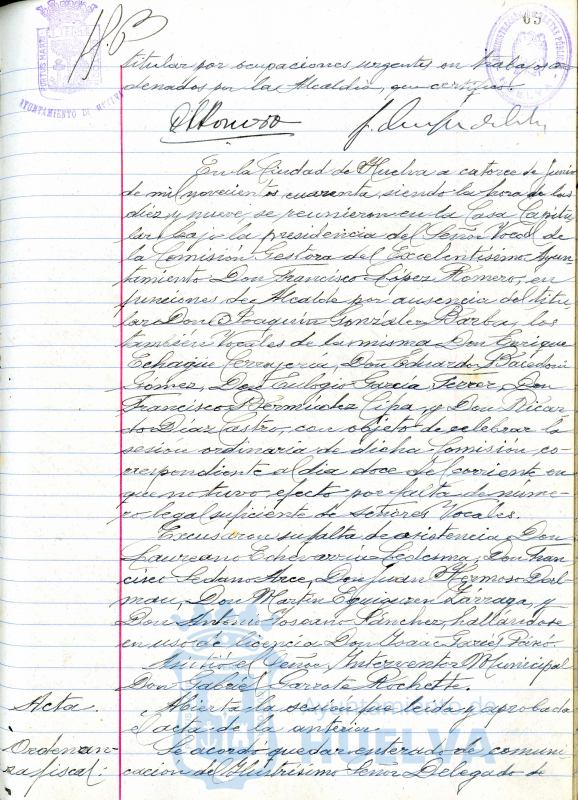 65
titular por ocupaciones urgentes en trabajos or-
denados por la Alcaldía, que certifico.
En la Ciudad de Huelva a catorce de Junio
de mil novecientos cuarenta, siendo la hora de las
diez y nueve, se reunieron en la Casa Capitu-
lar bajo la presidencia del Señor Vocal de
la Comisión Gestora del Excelentísimo Ayun-
tamiento Don Francisco López Romero, en
funciones de Alcalde por ausencia del titu-
lar Don Joaquín González Barba, los
también Vocales de la misma Don Enrique
Echagüe Don Eduardo
Gómez, Don Eulogio García Ferrer, Don
Francisco Bermúdez Cipa, y Don Ricar-
do Díaz Castro, con objeto de celebrar la
sesión ordinaria de dicha Comisión co-
rrespondiente al día doce del corriente en
que no tuvo efecto por falta de núme-
ro legal suficiente de señores Vocales.
Excusaron su falta de asistencia Don
Laureano Echevarría Ledesma, Don Fran-
cisco Sedano Arce, Don Juan Hermoso
Don Martín Zárraga, y
Don Antonio Toscano Sánchez, hallándose
en uso de licencia Don Isaac
Asistió el Señor Interventor Municipal
Don Gabriel Garrote Rochette.
Acta. Abierta la sesión, fue leída y aprobada
el acta de la anterior.
Ordenan- Se acordó quedar enterado de comuni-
za fiscal: cación del Ilustrísimo Señor Delegado de
Ayuntamiento de
HUELVA